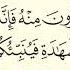 ونَ مِنْهُ فَإِنَّهُ
هَٰدَةِ فَيُنَبِّئُكُم